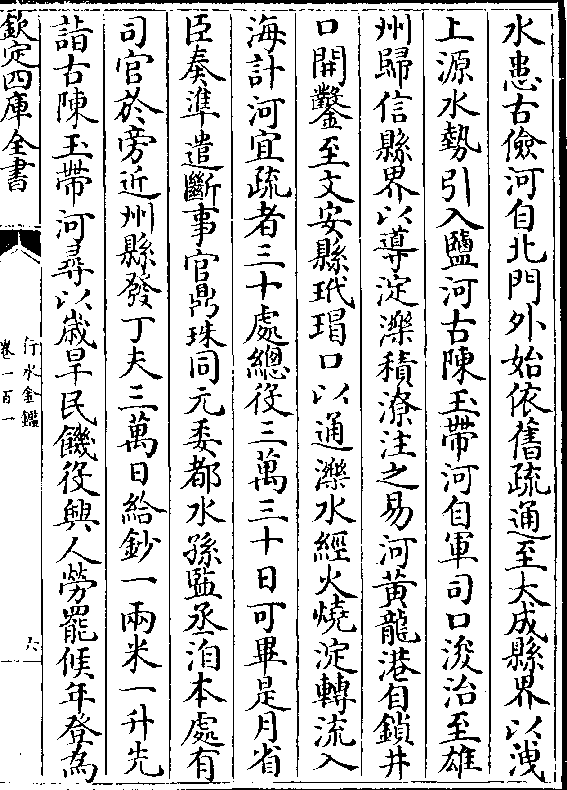 水患古儉河自北門外始依舊疏通至大成縣界以洩
上源水勢引入鹽河古陳玉帶河自軍司口浚治至雄
州歸信縣界以導淀濼積潦注之易河黃龍港自鎖井
口開鑿至文安縣玳瑁口以通濼水經火燒淀轉流入
海計河宜疏者三十處總役三萬三十日可畢是月省
臣奏準遣斷事官鼎珠同元委都水孫監丞洎本處有
司官於旁近州縣發丁夫三萬日給鈔一兩米一升先
詣古陳玉帶河尋以歲旱民饑役興人勞罷候年登為
欽定四庫全書
行水金鑑
卷一百一
六